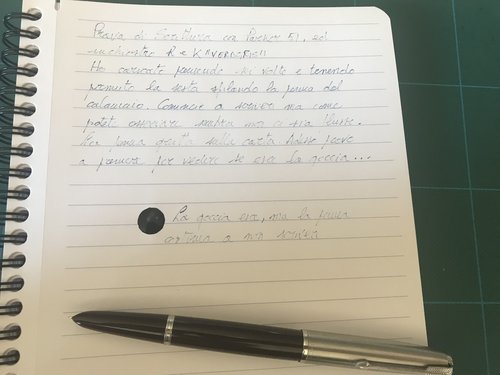 Prova di scrittura con Parker 51, ed
inchiostro R e K "VERDORIS"
Ho caricato premendo volte e tenendo
premuto la sesta sfilando la penna dal
calamaio. Comincio a scrivere ma come
potete osservare sembra non ci sia flusso.
La penna gratta sulla carta. Adesso provo
a premere per vedere se esce la goccia...
La goccia esce, ma la penna
continua a non scrivere